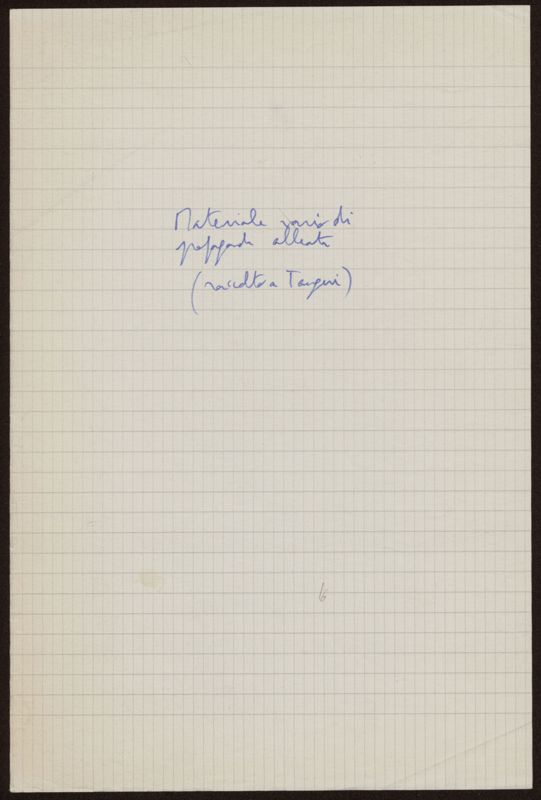 Materiale vario di
propaganda alleata
(raccolto a Tangeri)
6